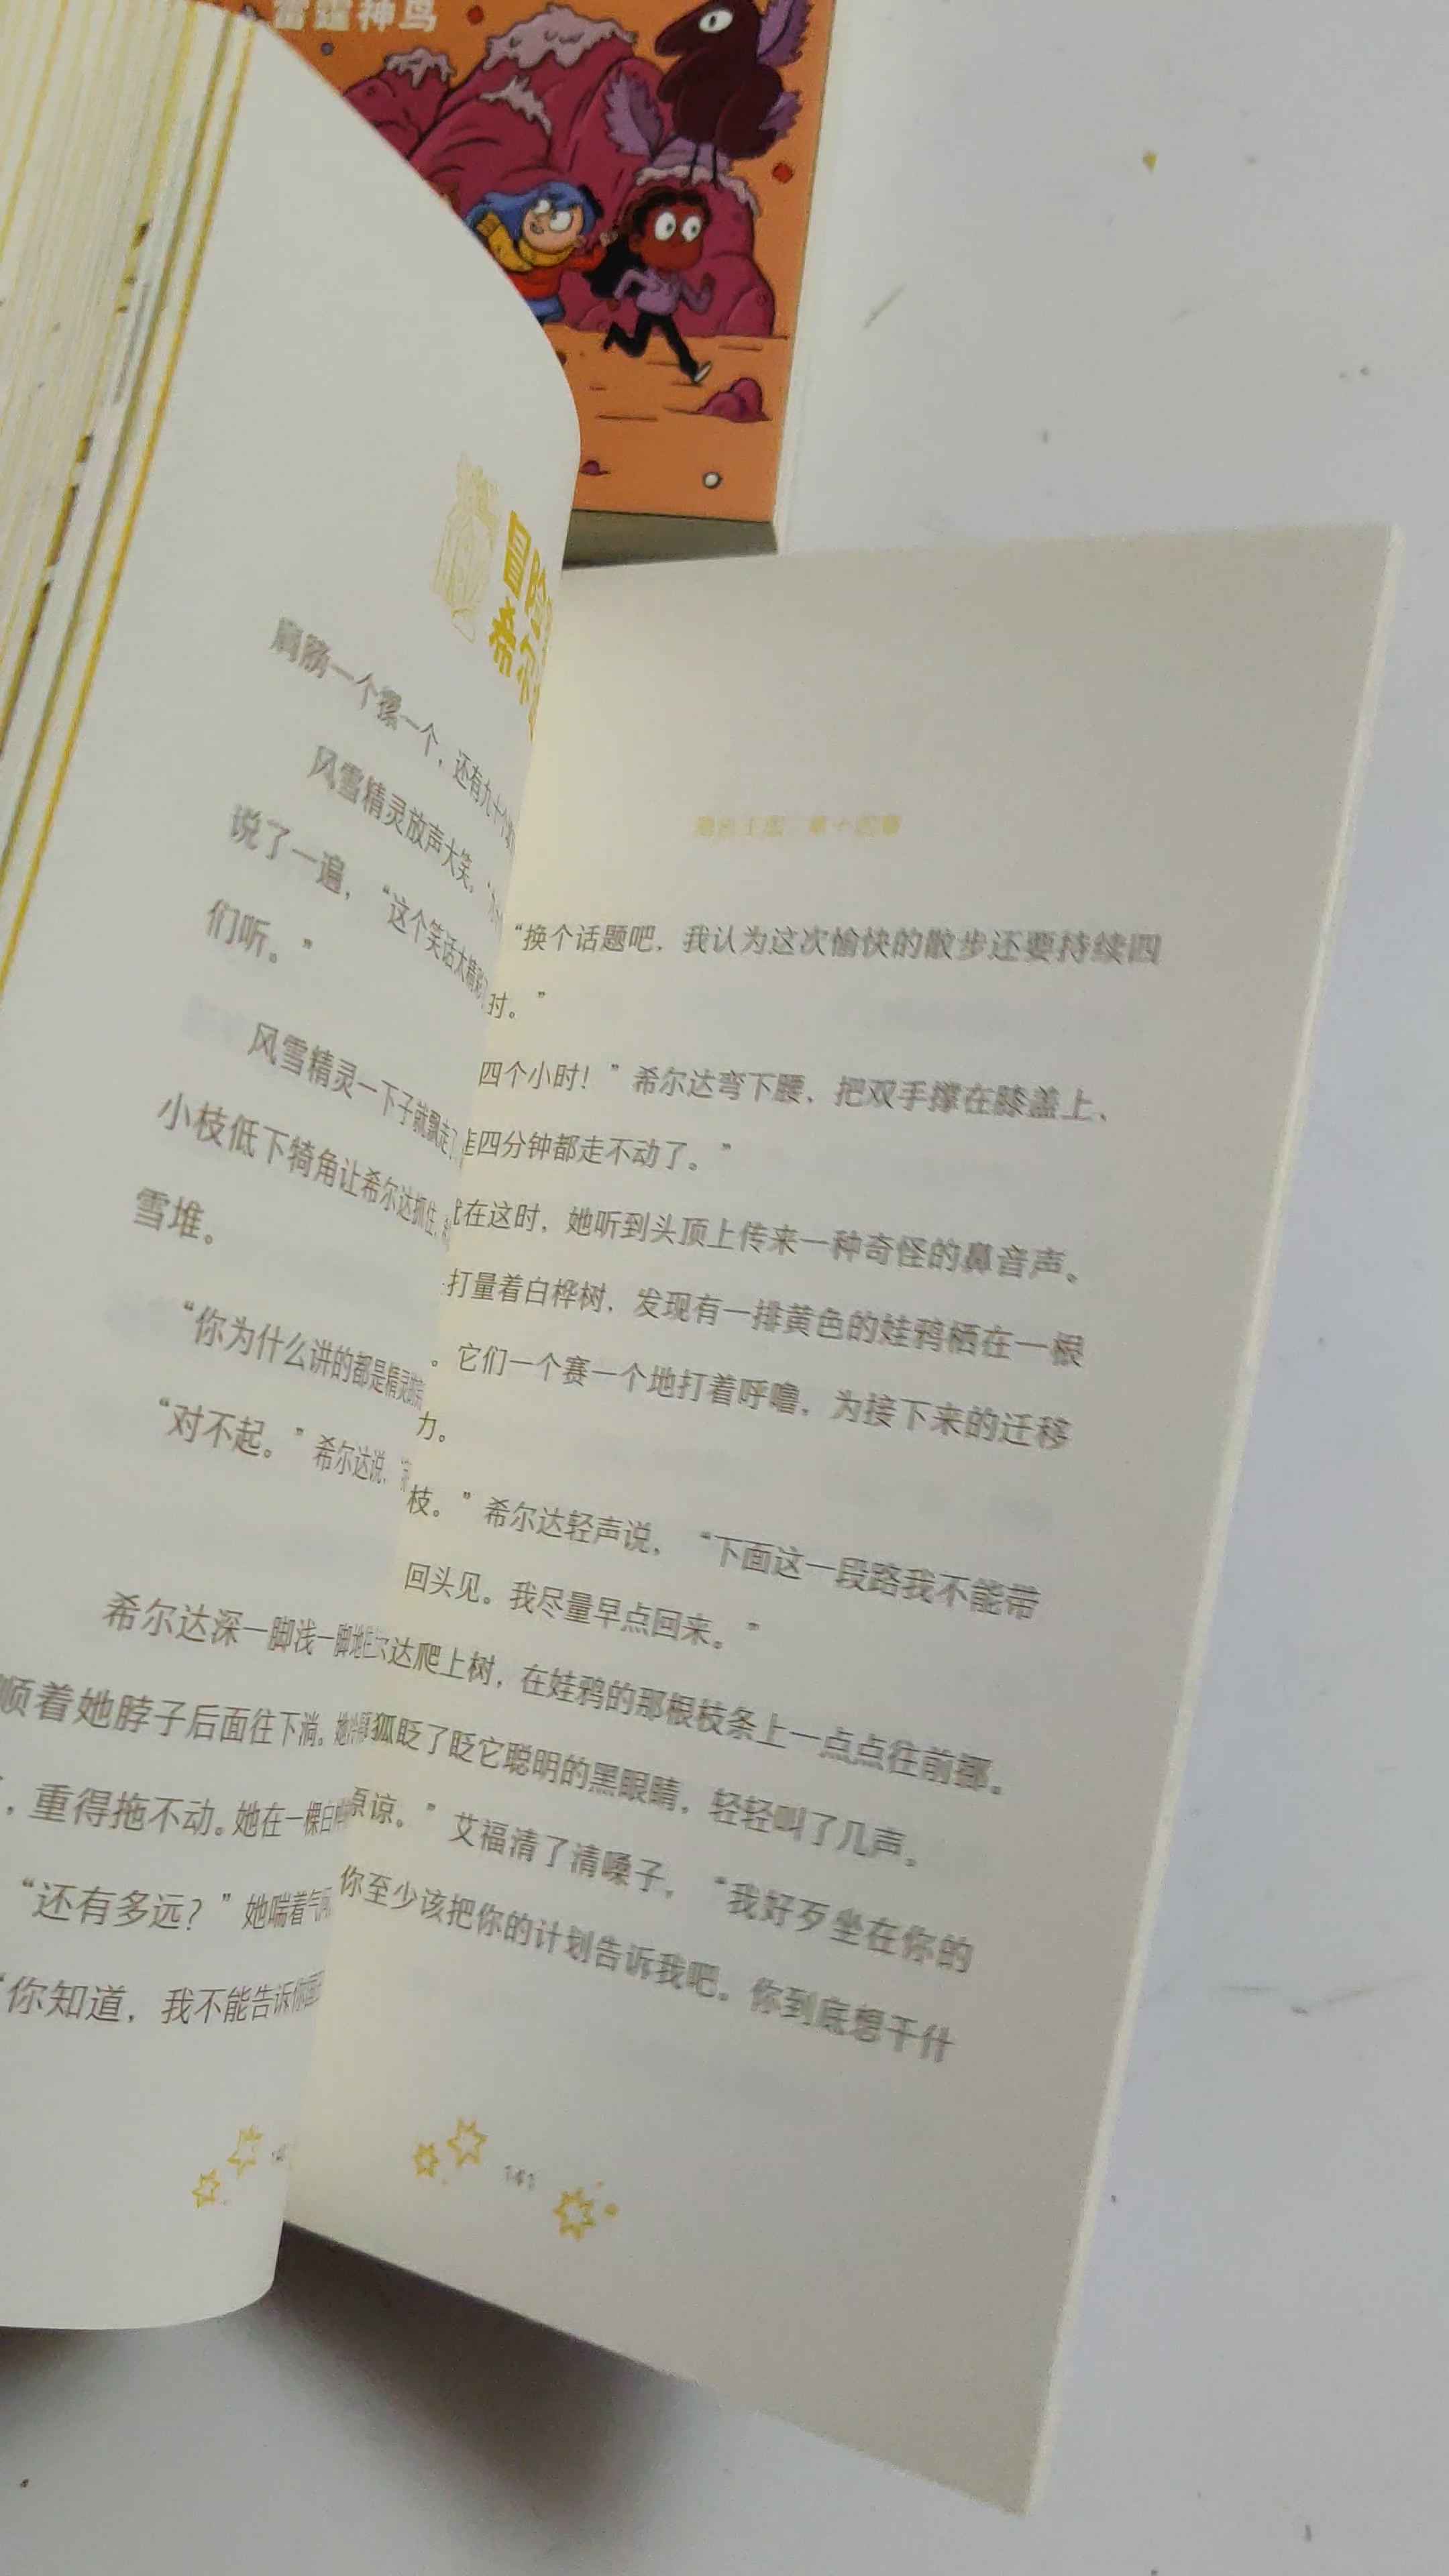 雷霆神鸟
冒险
希尔
肩膀一个摞一个，还有九十个
风雪精灵放声大笑。
说了一遍，“这个笑话太精彩
们听。”
风雪精灵一下子就飘走了
小枝低下犄角让希尔达抓住，
雪堆。
“你为什么讲的都是精灵
“对不起。”希尔达说，
希尔达深一脚浅一脚地
顺着她脖子后面往下淌。她
，重得拖不动。她在一棵白
“还有多远？”她喘着气
“你知道，我不能告诉你
第十四章
“换个话题吧，我认为这次愉快的散步还要持续四
时。”
四个小时！”希尔达弯下腰，把双手撑在膝盖上，
走四分钟都走不动了。”
在这时，她听到头顶上传来一种奇怪的鼻音声。
打量着白桦树，发现有一排黄色的娃鸦栖在一根
。它们一个赛一个地打着呼噜，为接下来的迁移
力。
枝。”希尔达轻声说，“下面这一段路我不能带
回头见。我尽量早点回来。”
达爬上树，在娃鸦的那根枝条上一点点往前挪。
狐眨了眨它聪明的黑眼睛，轻轻叫了几声。
原谅。”艾福清了清嗓子，“我好歹坐在你的
你至少该把你的计划告诉我吧。你到底想干什
141